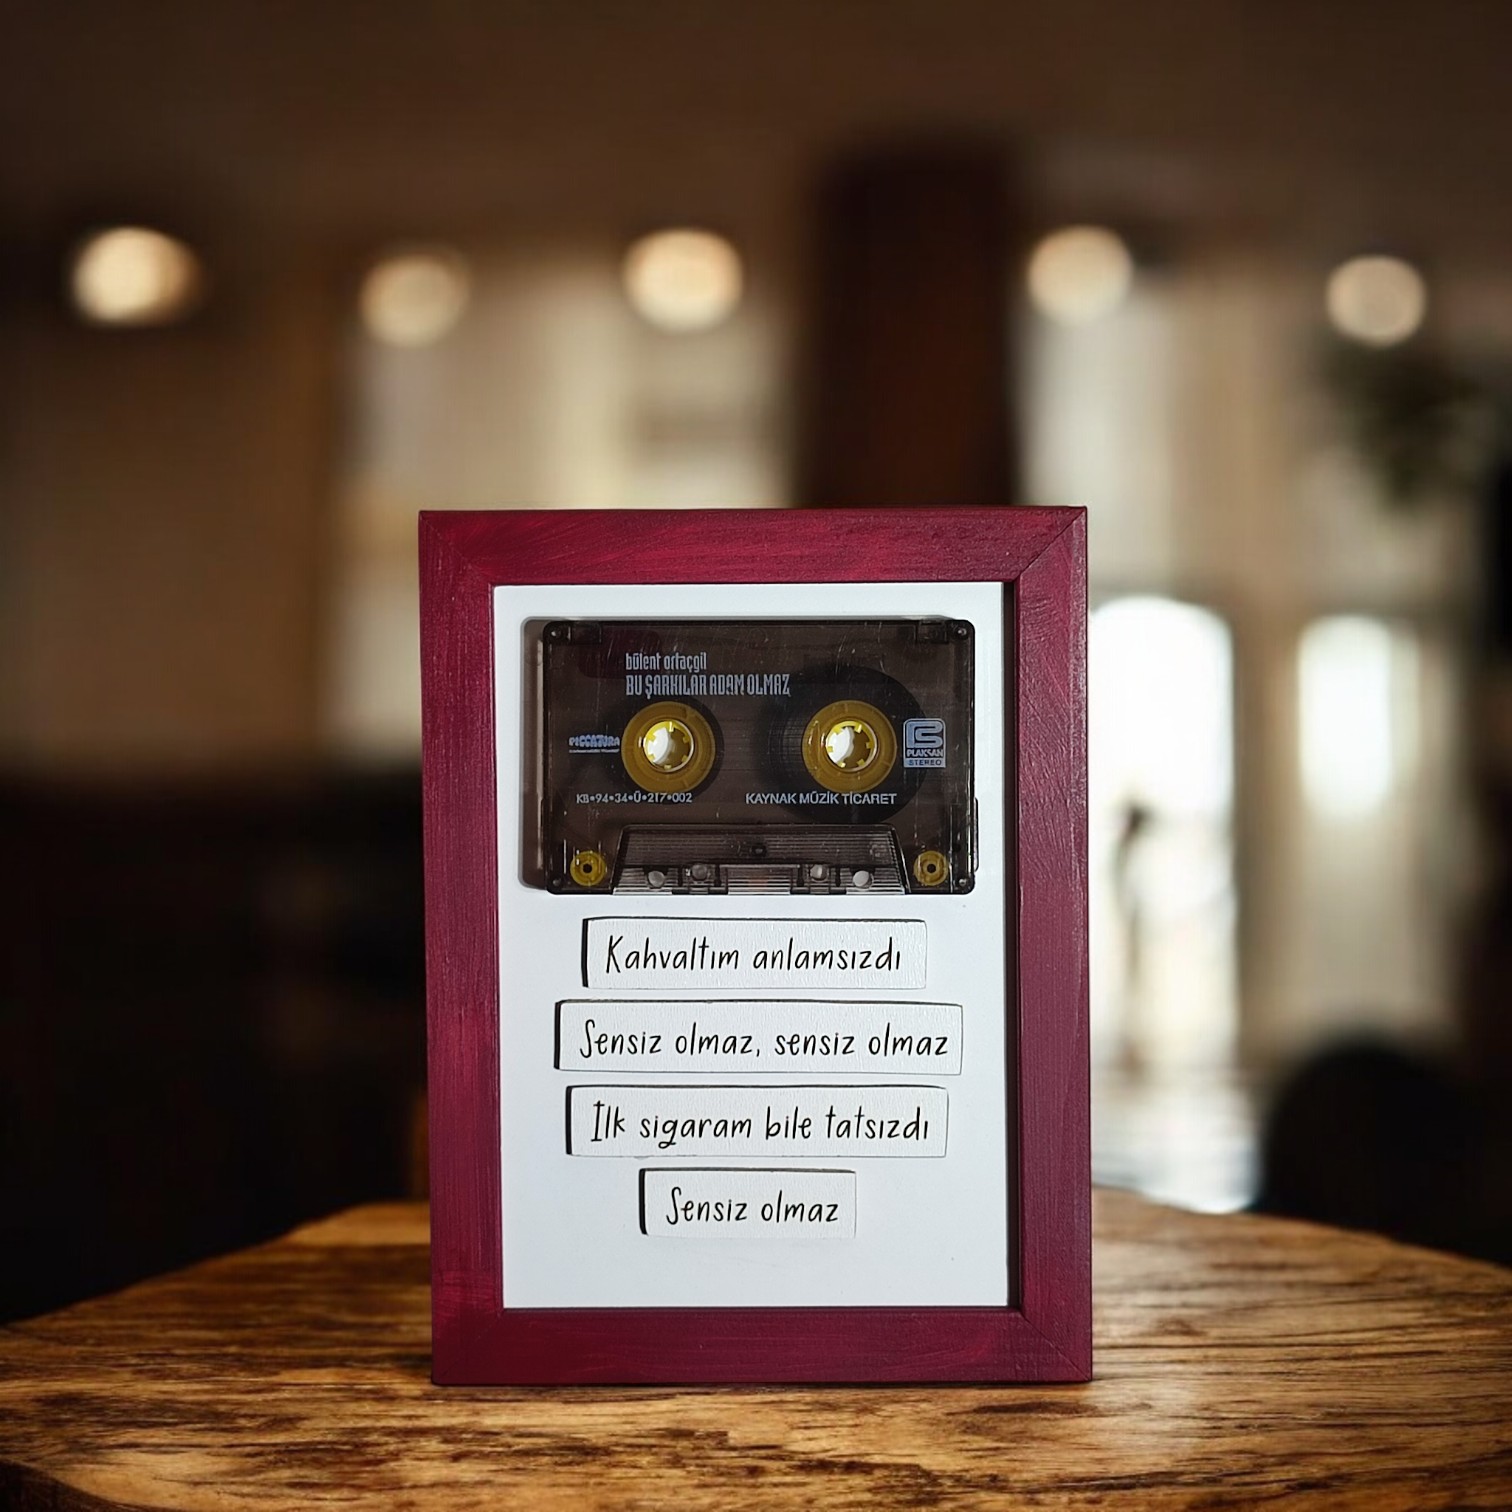 bülent ortaçgil
BU ŞARKILAR ADAM OLMAZ
PICCATURA
PLAKSAN
STEREO
KB•94•34•Ü•217•002
KAYNAK MÜZİK TİCARET
Kahvaltım anlamsızdı
Sensiz olmaz, sensiz olmaz
İlk sigaram bile tatsızdı
Sensiz olmaz